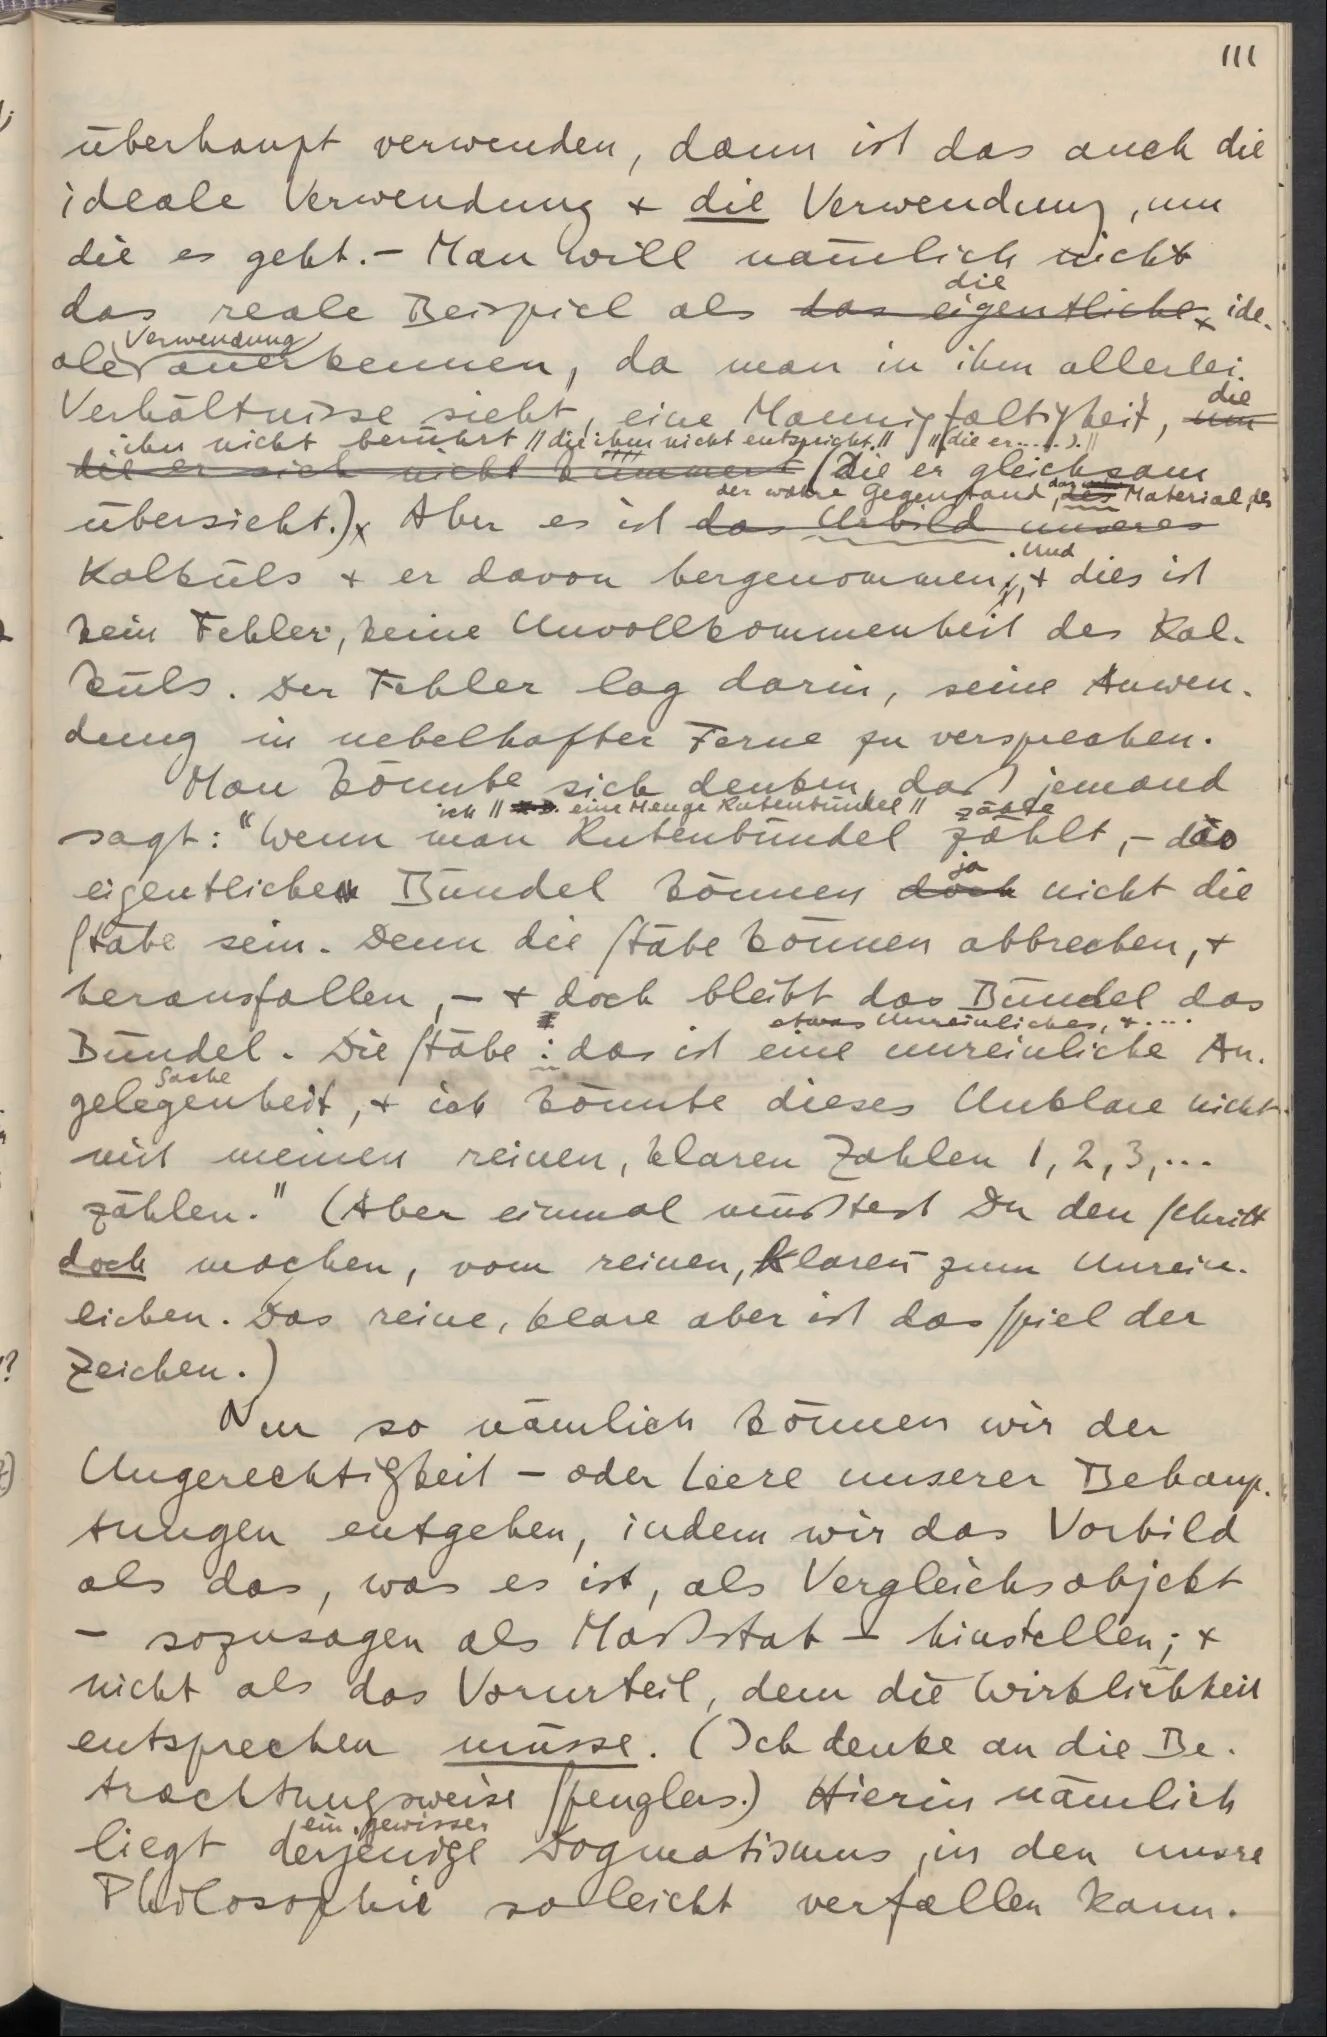 111
überhaupt verwenden, dann ist das auch die
ideale Verwendung + die Verwendung, um
die es geht. – Man will nämlich nicht
die
das reale Beispiel als das eigentliche ide-
Verwendung
ale anerkennen, da man in ihm allerlei
die
Verhältnisse sieht, eine Mannigfaltigkeit, um
ihn nicht berührt // die ihm nicht entspricht. // // die er.....). //
die er sich nicht kümmert (die er gleichsam
der wahre Gegenstand, das Material, des
übersieht.) Aber es ist das Urbild unseres
. Und
Kalküls + er davon hergenommen, + dies ist
kein Fehler, keine Unvollkommenheit des Kal-
küls. Der Fehler lag darin, seine Anwen-
dung in nebelhafter Ferne zu versprechen.
Man könnte sich denken, daß jemand
ich // eine Menge Rutenbündel // zähle
sagt: "Wenn man Rutenbündel zählt, – das
ja
eigentliche Bündel können doch nicht die
Stäbe sein. Denn die Stäbe können abbrechen, +
herausfallen, – + doch bleibt das Bündel das
etwas Unreinliches, + ....
Bündel. Die Stäbe : das ist eine unreinliche An-
Sache
gelegenheit, + ich könnte dieses Unklare nicht
mit meinen reinen, klaren Zahlen 1, 2, 3, ...
zählen." (Aber einmal müßtest Du den Schritt
doch machen, vom reinen, Klaren zum Unrein-
lichen. Das reine, klare aber ist das Spiel der
Zeichen.)
Nur so nämlich können wir der
Ungerechtigkeit – oder Leere unserer Behaup-
tungen entgehen, indem wir das Vorbild
als das, was es ist, als Vergleichsobjekt
– sozusagen als Maßstab – hinstellen; +
nicht als das Vorurteil, dem die Wirklichkeit
entsprechen müsse. (Ich denke an die Be-
trachtungsweise Spenglers.) Hierin nämlich
ein gewisser
liegt derjenige Dogmatismus, in den unsre
Philosophie so leicht verfallen kann.